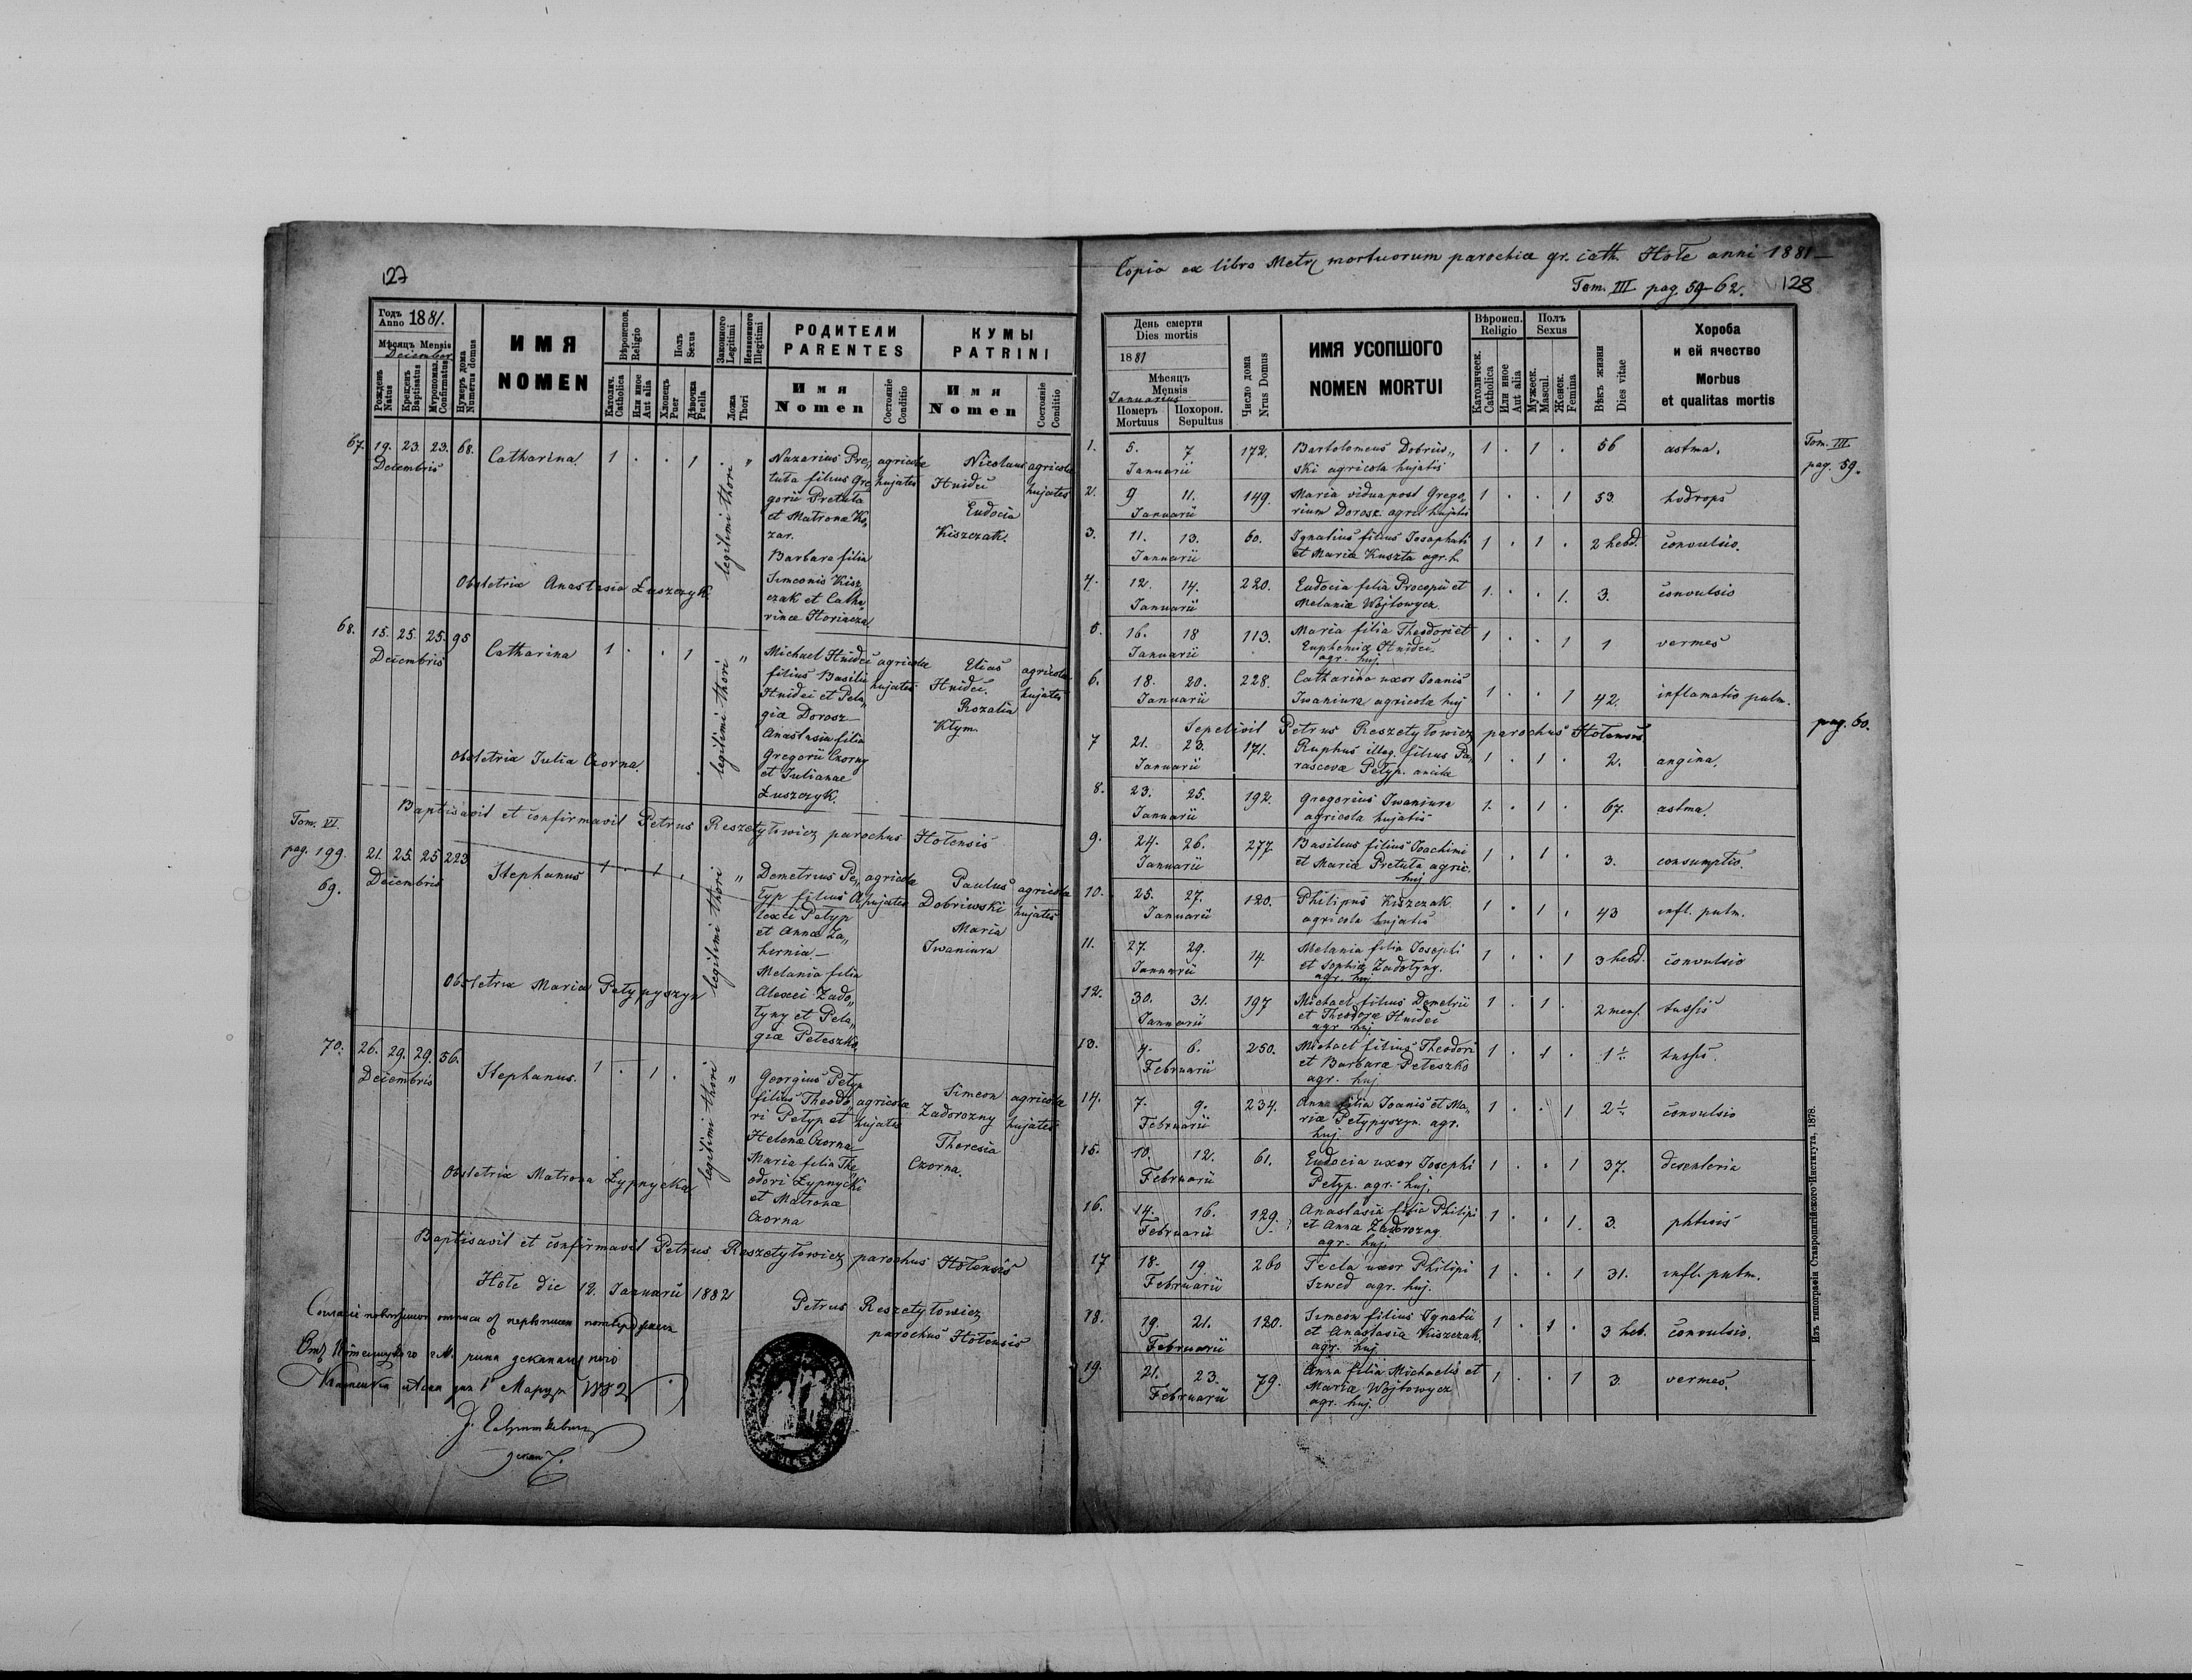 127
Годъ Anno 1881.
Мѣсяцъ Mensis
December
Рожденъ Natus
Крещенъ Baptisatus
Мvропомаз. Confirmatus
Нумеръ дома Numerus domus
ИМЯ
NOMEN
Вѣроиспов. Religio
Католич. Catholica
Или иное Aut alia
Полъ Sexus
Хлопецъ Puer
Дѣвочка Puella
Законного Legitimi
Незаконного Illegitimi
Ложа Thori
РОДИТЕЛИ
PARENTES
Имя
Nomen
Состояніе Conditio
КУМЫ
PATRINI
Имя
Nomen
Состояніе Conditio
67. 19. 23. 23. 68. Catharina. 1 . . 1 legitimi thori "
Decembris
Nazarius Pre„
tuta filius Gre
gorii Pretuta
et Matronæ Ko„
zar.
Barbara filia
Simeonis Kisz
czak et Catha„
rinæ Horincza
agricolæ
hujates
Nicolaus
Hnidei
Eudocia
Kiszczak.
agricolæ
hujates
Obstetrix Anastasia Łuszczyk.
68. 15. 25. 25. 95 Catharina 1 . . 1 legitimi thori "
Decembris
Michael Hnidei
filius Basilii
Hnidei et Pela„
giæ Dorosz
Anastasia filia
Gregorii Czorny
et Julianae
Łuszczyk.
agricolæ
hujates
Elias
Hnidei.
Rozalia
Kłym.
agricolæ
hujates
Obstetrix Julia Czorna.
Baptisavit et confirmavit Petrus Reszetyłowicz parochus Hotensis
Tom. VI.
pag. 199.
69. 21. 25. 25 223 Stephanus 1 . 1 . legitimi thori "
Decembris
Demetrius Pe„
typ filius A
lexei Petyp
et Annæ Za„
hernia.
Melania filia
Alexei Zado„
tyny et Pela„
giæ Peteszko
agricolæ
hujates
Paulus
Dobriwski
Maria
Iwaniura
agricolæ
hujates
Obstetrix Maria Petypyszyn
70. 26. 29. 29. 56. Stephanus. 1 . 1 . legitimi thori "
Decembris
Georgius Petyp
filius Theodo
ri Petyp et
Helenæ Czorna
Maria filia The
odori Łypnycki
et Matronæ
Czorna
agricolæ
hujates
Simeon
Zadorozny
Theresia
Czorna.
agricolæ
hujates
Obstetrix Matrona Łypnycka
Baptisavit et confirmavit Petrus Reszetyłowicz parochus Hotensis
Hole die 12. Januarii 1882
Petrus Reszetyłowicz
parochus Hotensis
1882
Copia ex libro Metr mortuorum parochiæ gr. cath. Hole anni 1881
Tom. III pag. 59-62. 128
День смерти
Dies mortis
1881
Мѣсяцъ
Mensis
Januarius
Померъ Mortuus
Похорон. Sepultus
Число дома Nrus Domus
ИМЯ УСОПШОГО
NOMEN MORTUI
Вѣроисп. Religio
Католическ. Catholica
Или иное Aut alia
Полъ Sexus
Мужеск. Mascul.
Женск. Femina
Вѣкъ жизни Dies vitae
Хороба
и ей ячество
Morbus
et qualitas mortis
Tom. III.
pag. 59.
1. 5. 7 Januarii 172. Bartolomeus Dobriw„ 1 . 1 . 56 astma.
ski agricola hujatis
2. 9 11. Januarii 149. Maria vidua post Grego„ 1 . . 1 53 hydrops
rium Dorosz. agric hujatis
3. 11. 13. Januarii 60. Ignatius filius Josaphati 1 . 1 . 2 hebd. convulsio.
et Mariæ Kuszta agr. h.
4. 12. 14. Januarii 220. Eudocia filia Procopii et 1. . . 1. 3. convulsio
Melaniæ Wojtowycz.
5. 16. 18 Januarii 113. Maria filia Theodori et 1 . . 1 1 vermes
Euphemiæ Hnidei.
agr. huj.
6. 18. 20. Januarii 228. Catharina uxor Joanis 1 . . 1 42. inflamatio pulm.
Iwaniura agricolæ huj
Sepelivit Petrus Reszetyłowicz parochus Hotensis.
pag. 60.
7 21. 23. Januarii 171. Ruphus illeg. filius Pa„ 1 . 1 . 2. angina.
rascevæ Petyp. ancilæ
8. 23. 25. Januarii 192. Gregorius Iwaniura 1. . 1 . 67. astma.
agricola hujatis
9. 24. 26. Januarii 277. Basilius filius Joachimi 1 . 1 . 3. consumptio.
et Mariæ Pretuta agric.
huj
10. 25. 27. Januarii 120. Philipus Kiszczak 1 . 1 . 43 infl. pulm.
agricola hujatis
11. 27. 29. Januarii 14. Melania filia Josephi 1 . . 1 3 hebd. convulsio
et Sophiæ Zadotyny.
agr. huj.
12. 30. 31. Januarii 197 Michael filius Demetrii 1 . 1 . 2 mens. tussis
et Theodoræ Hnidei
agr huj.
13. 4. 6. Februarii 250. Michael filius Theodori 1 . 1 . 1½ tussis.
et Barbaræ Peteszko
agr. huj
14. 7. 9. Februarii 234. Anna filia Joanis et Ma„ 1 . . 1 2½ convulsio
riæ Petypyszyn. agr.
huj
15. 10. 12. Februarii 61. Eudocia uxor Josephi 1 . . 1 37. desenteria
Petyp. agr. huj.
16. 14. 16. Februarii 129. Anastasia filia Philipi 1 . . 1. 3. phtisis
et Annæ Zadorozny
agr. huj.
17 18. 19 Februarii 260 Tecla uxor Philipi 1 . . 1 31. infl. pulm.
Szwed agr. huj.
18. 19. 21. Februarii 120. Simeon filius Ignatii 1 . 1 . 3 heb. convulsio.
et Anastasia Kiszczak.
agr. huj.
19. 21. 23. Februarii 79. Anna filia Michaelis et 1 . . 1 3. vermes.
Mariæ Wojtowycz
agr. huj.
Изъ типографіи Ставропигійского Института, 1878.